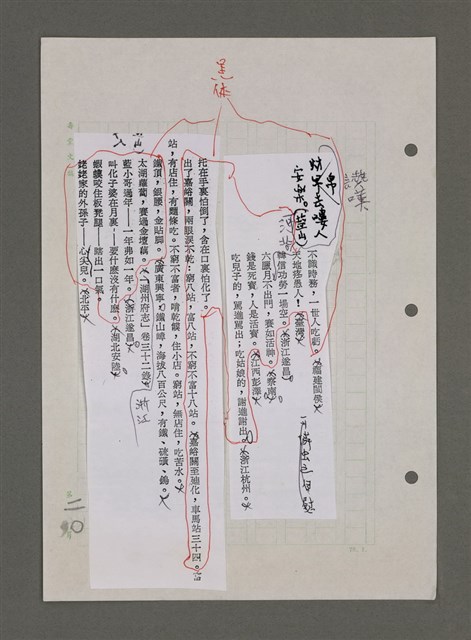 黑体
讚嘆
財帛去嘍人
安樂。
河北
不識時務，一世人吃虧。福建閩侯
天地痣愚人！臺灣
韓信功勞一場空。浙江遂昌
六臘月不出門，賽如活神。泰南
錢是死寶，人是活寶。江西彭澤
吃兒子的，罵進罵出；吃姑娘的，謝進謝出。浙江杭州。
托在手裏怕倒了，含在口裏怕化了。
出了嘉峪關，兩眼淚不乾：窮八站，富八站，不窮不富十八站。嘉峪關至迪化，車馬站三十四。富
站，有店住，有麵條吃。不窮不富者，啃乾饃，住小店。窮站，無店住，吃苦水。
鐵頂，銀腰，金貼脚。廣東興寧。鐵山嶂，海拔八百公尺，有鐵、硫磺、鎢。
太湖蘿蔔，賽過金壇藕。「湖州府志」卷三十二錄。
浙江
藍小哥過年——一年弗如一年。浙江遂昌
叫化子婆在月裏——要什麼沒有什麼。湖北安陸
蝦蟆咬住板凳腿——瞎出一口氣。
姥姥家的外孫子——心尖兒。北平